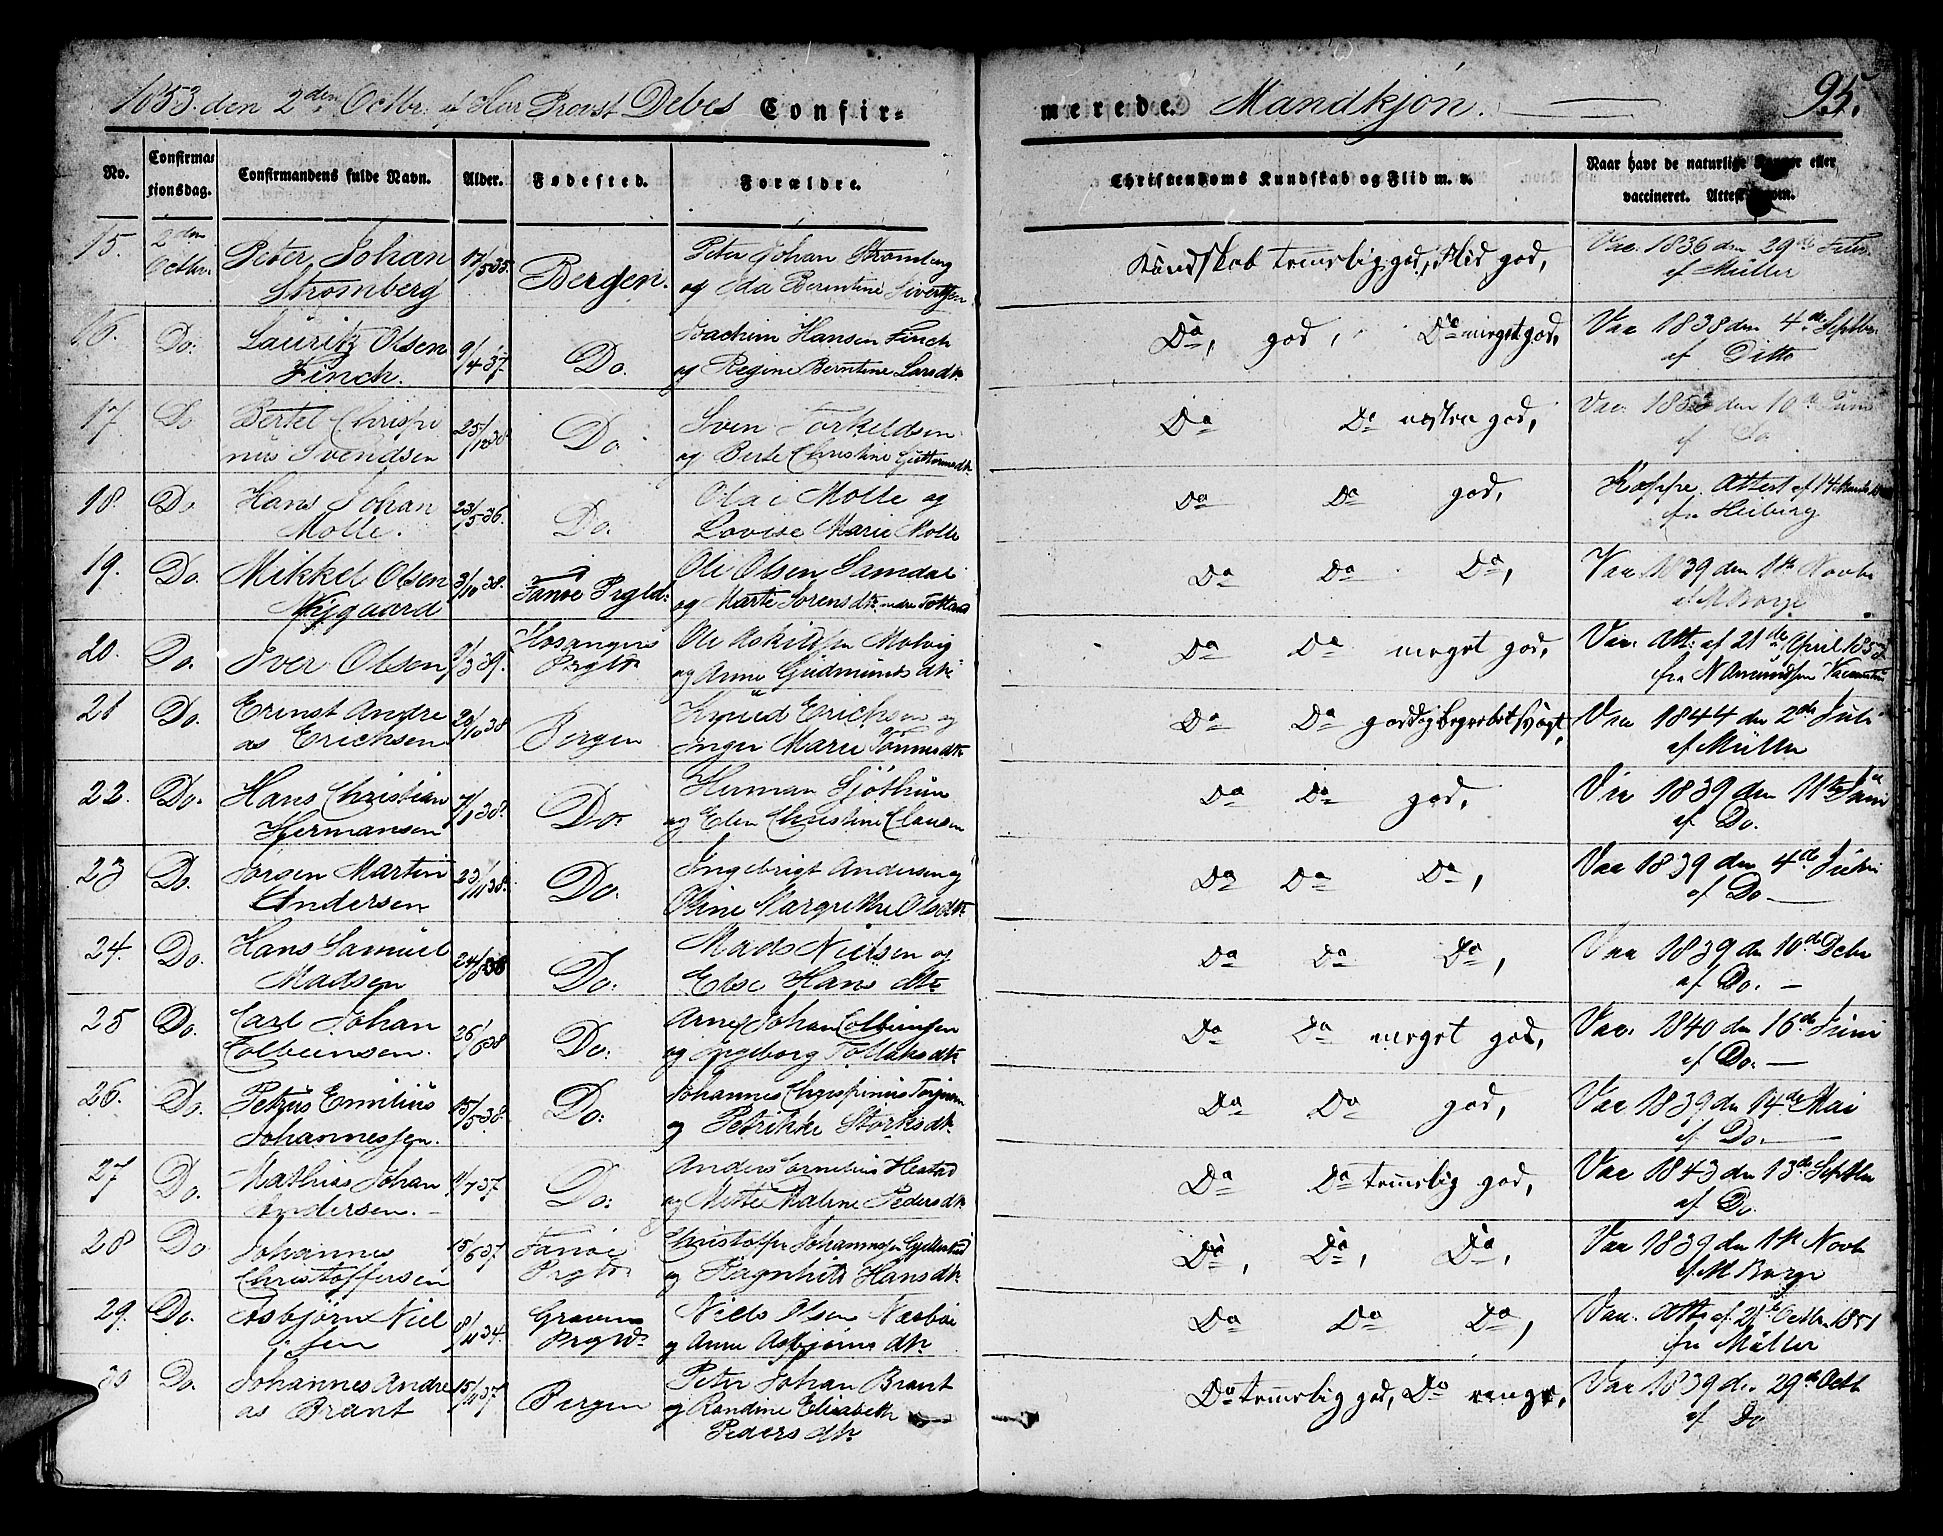 1853. den 2den Octbr. af Herr Provst Debes Confir-
merede. Mandkjön. 95.
No. Confirma- tionsdag. Confirmandens fulde Navn. Alder. Fødested. Forældre.
Christendoms Kundskab og Flid m. v. Naar havt de naturlige Kopper eller
vaccineret. Attest
15. 2den Octbr. Peter Johan 17/5 35. Bergen. Peter Johan Stromberg
Stromberg og Ida Berentine Sivertsen
Kundskab temmelig god, Flid god, Vac. 1836 den 29de Febr.
af Müller
16. Do. Lauritz Olsen 9/4 37. Do. Joachim Hansen Finch
Finch. og Regine Berntine Larsdtr.
Do, god, Do meget god, Vac 1838 den 4de Septbr.
af Ditto
17. Do Bertel Chrispi Do Sven Torkeldsen
nus Svendsen og Berte Christine Guttormsdtr.
Do Do næsten god, Vac. 1853 den 10de Juni
af Do
18. Do Hans Johan 23/5 36. Do. Olai Molle og
Molle. Lovise Marie Molle
Do Do god, Koppe. Attest af 14
fra Heiberg
19. Do. Mikkel Olsen 3/10 38. Fanøe Prgld. Ole Olsen Samdal
Nygaard og Marte Sorensdtr.
Do Do Do, Vac 1839 den 1te Novbr
af M Borge
20. Do. Iver Olsen 9/3 39. Hosangers Ole Askildsen Molvig
Prgld. og Anne Gudmundsdtr.
Do Do meget god, Vac. Att: af 21de April 1853
fra N Amundsen
21 Do. Ernst Andre 20/10 38 Bergen Knud Erichsen og
as Erichsen Inger Marie Tonnesdtr.
Do Do god Vac 1844 den 2de Juli
af Müller
22. Do. Hans Christian 7/1 38. Do. Herman Sjöthun
Hermansen og Elen Christine Clausen
Do Do god, Vac 1839 den 11te Juni
af Do.
23 Do. Jörgen Martin 23/11 38. Do. Ingebrigt Andersen og
Andersen Oline Margrethe Olsdtr.
Do Do Do, Vac 1839 den 4de Juni
af Do
24. Do. Hans Samuel Do. Mads Nielsen og
Madsen Else Hansdtr
Do Do Do, Vac 1839 den 10de Debr
af Do.
25 Do. Carl Johan 26/6 38 Do: Arne Johan Colbeinsen
Colbeinsen. og Ingeborg Tollaksdtr.
Do Do meget god, Vac. 1840 den 16de Juni
af Do.
26. Do. Petrus Emilius 15/5 38. Do: Johannes Chrispinius
Johannessen. og Petrikke Storksdtr.
Do Do god, Vac 1839 den 14de Mai
af Do.
27 Do. Mathias Johan Do: Anders Cornelius Hestad
Andersen. og Mette Malene Pedersdtr.
Do Do temmelig god, Vac 1843 den 13de Septbr
af Do
28 Do Johannes 15/6 37 Fanøe Christoffer Johannessen
Christoffersen Prgld. og Ragnhild Hansdtr.
Do, Do, Do, Vac 1839 den 1te Novbr
af M Borge
29. Do. Asbjörn Niel 18/11 34. Gravens Niels Olsen Næsbøe
sen Prgld. og Anne Asbjörnsdtr
Do Do Do, Vac. Att: af 21de Octbr. 1851
fra Müller
30 Do. Johannes Andre 15/11 37. Bergen Peter Johan Brant
as Brant og Randine Elisabeth
Pedersdtr.
Do temmelig god, Do ringe, Vac 1839 den 29de Octb
af Do